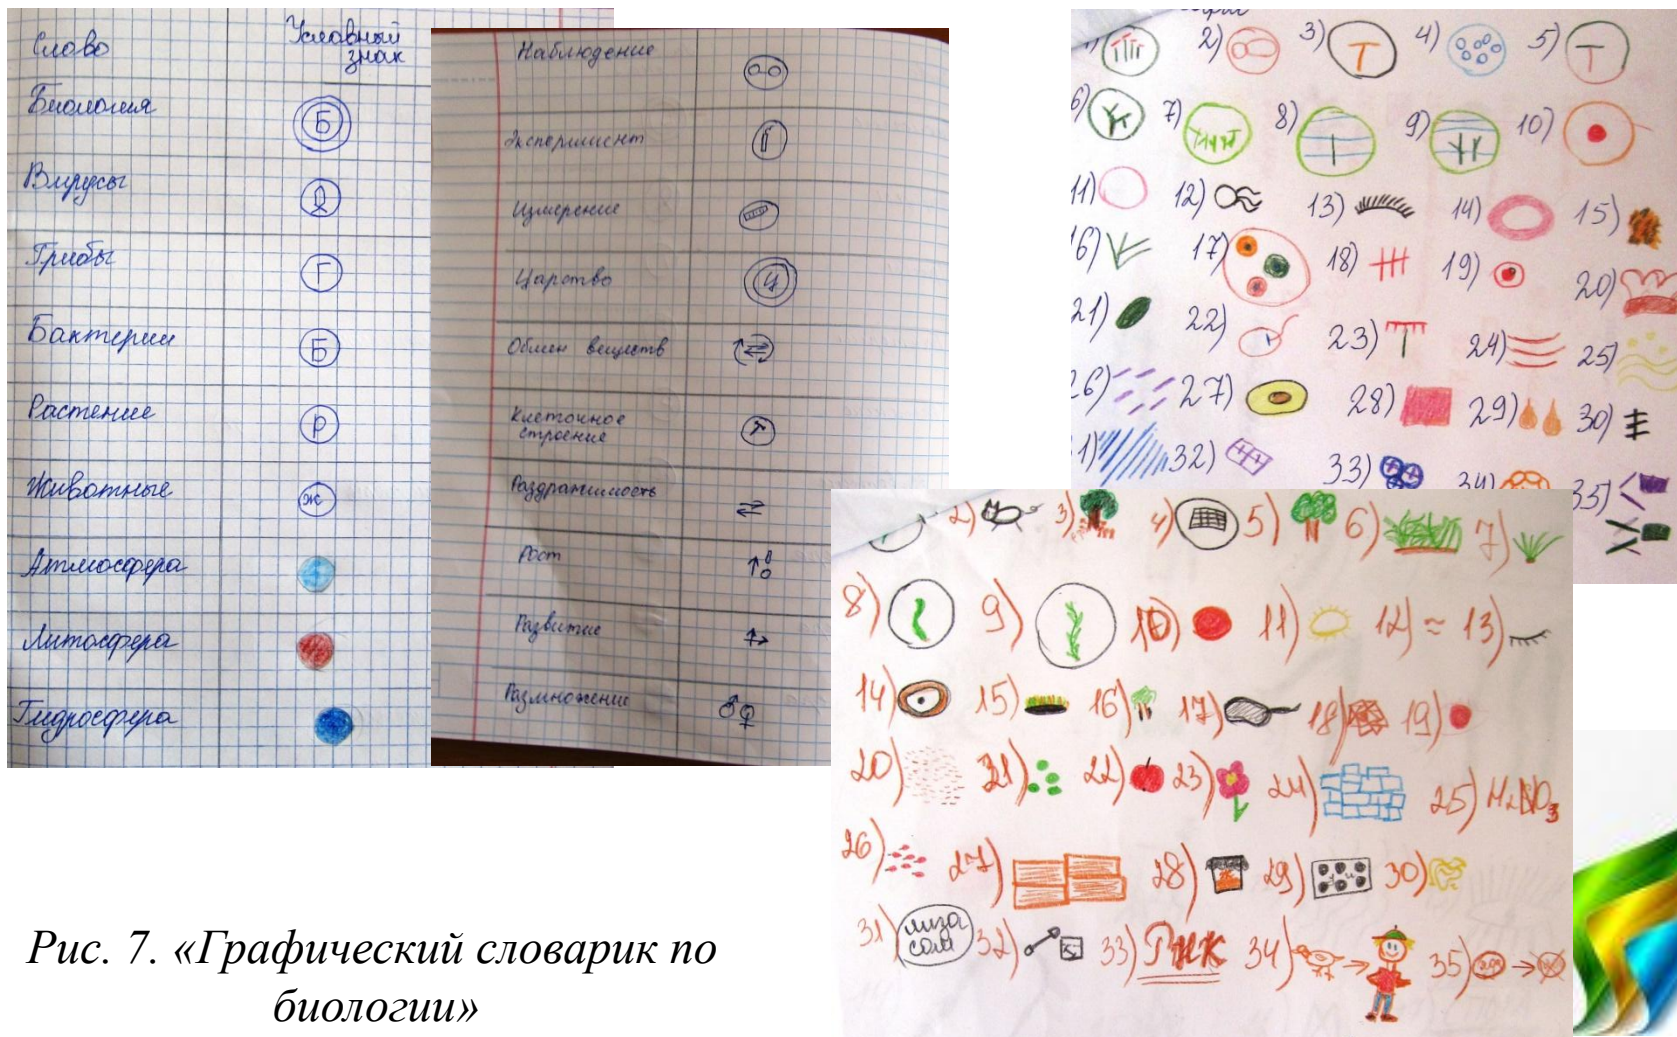 Слово
Условный
знак
Биология
Б
Вирусы
Грибы
Г
Бактерии
Б
Растение
Р
Животные
Ж
Атмосфера
Литосфера
Гидросфера
Наблюдение
Эксперимент
Измерение
Царство
Ц
Обмен веществ
Клеточное
строение
Раздражимость
Рост
Развитие
Размножение
♂♀
2) 3) 4) 5)
6) 7) 8) 9) 10)
11) 12) 13) 14) 15)
16) 17) 18) 19) 20)
21) 22) 23) 24) 25)
26) 27) 28) 29) 30)
32) 33) 34) 35)
2) 3) 4) 5) 6) 7)
8) 9) 10) 11) 12) ≈ 13)
14) 15) 16) 17) 18) 19)
20) 21) 22) 23) 24) 25)
26) 27) 28) 29) 30)
31) лиза
сома 32) 33) 34) 35)
Рис. 7. «Графический словарик по
биологии»